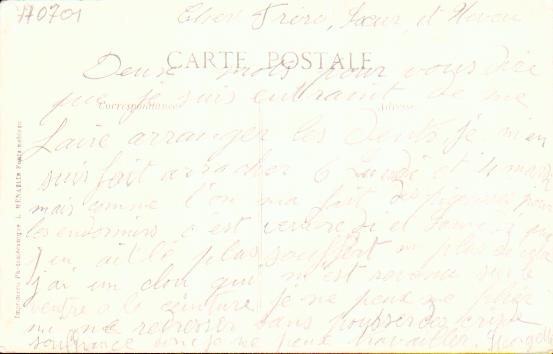 Cher Frère, Sœur, et Neveu
CARTE POSTALE
Deux mots pour vous dire
que je suis entraint de me
Correspondance
Adresse
faire arranger les dents je m'en
suis fait arracher 6 lundi et 4 mardi
mais comme l'on ma fait des piqures pour
les endormirs c'est vendredi et samedi que
j'en ait le plus souffert en plus de cela
j'ai un clou qui m'est revenu sur le
ventre a la ceinture je ne peux me plier
ni me redresser sans pousser des cris de
souffrance donc je ne peux travailler. Georges